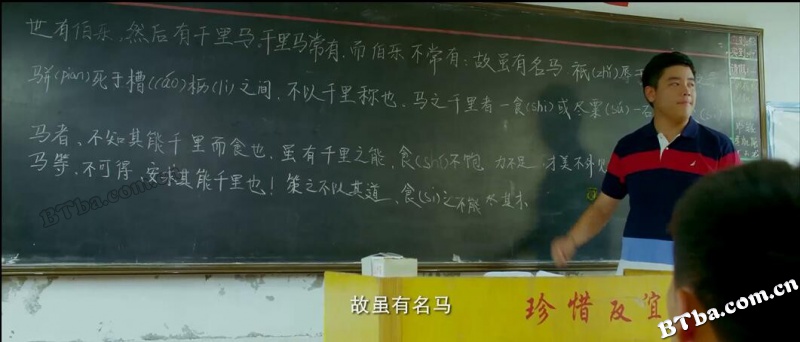 世有伯乐,然后有千里马,千里马常有,而伯乐不常有;故虽有名马 祇(zhǐ)辱于
骈(pián)死于槽(cáo)枥(lì)之间,不以千里称也,马之千里者 一食(shí)或尽粟(sù)一石
马者、不知其能千里而食也,虽有千里之能,食(shí)不饱 力不足 才美不外见
马等,不可得,安求其能千里也!策之不以其道,食(sì)之不能尽其才
BTba.com.cn
故虽有名马
珍惜友谊
BTba.com.cn